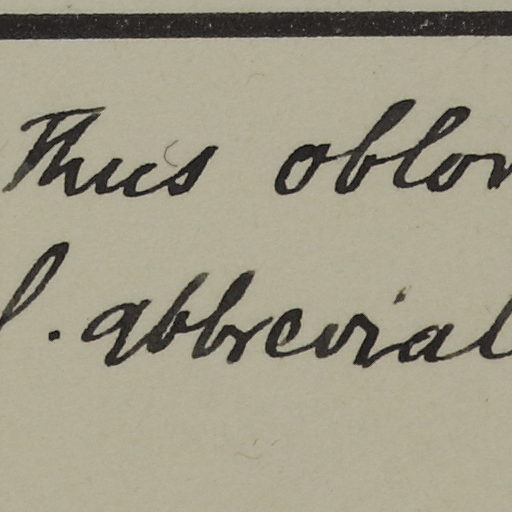 Thus oblon
f. abbrevial